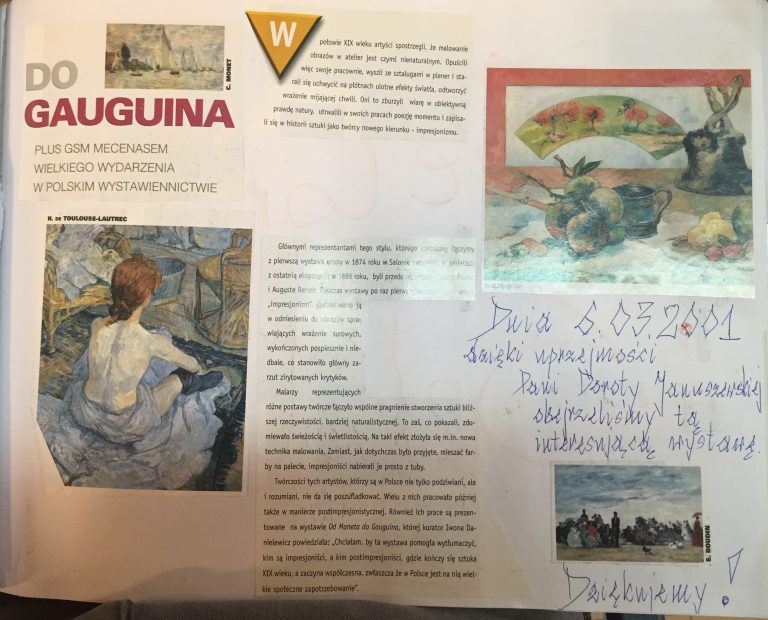 DO
GAUGUINA
C. MONET
PLUS GSM MECENASEM
WIELKIEGO WYDARZENIA
W POLSKIM WYSTAWIENNICTWIE
H. DE TOULOUSE-LAUTREC
W
połowie XIX wieku artyści spostrzegli, że malowanie
obrazów w atelier jest czymś nienaturalnym. Opuścili
więc swoje pracownie, wyszli ze sztalugami w plener i sta-
rali się uchwycić na płótnach ulotne efekty światła, odtworzyć
wrażenie mijającej chwili. Oni to zburzyli wiarę w obiektywną
prawdę natury, utrwalili w swoich pracach poezję momentu i zapisa-
li się w historii sztuki jako twórcy nowego kierunku - impresjonizmu.
Głównymi reprezentantami tego stylu, którego narodziny łączymy
z pierwszą wystawą grupy w 1874 roku w Salonie
z ostatnią ekspozycją w 1886 roku, byli przede
i Auguste Renoir. Podczas wystawy po raz pierwszy
„impresjonizm”. Zastosowano ją
w odniesieniu do obrazów spra-
wiających wrażenie surowych,
wykończonych pospiesznie i nie-
dbale, co stanowiło główny za-
rzut zirytowanych krytyków.
Malarzy reprezentujących
różne postawy twórcze łączyło wspólne pragnienie stworzenia sztuki bliż-
szej rzeczywistości, bardziej naturalistycznej. To zaś, co pokazali, zdu-
miewało świeżością i świetlistością. Na taki efekt złożyła się m.in. nowa
technika malowania. Zamiast, jak dotychczas było przyjęte, mieszać far-
by na palecie, impresjoniści nabierali je prosto z tuby.
Twórczości tych artystów, którzy są w Polsce nie tylko podziwiani, ale
i rozumiani, nie da się poszufladkować. Wielu z nich pracowało później
także w manierze postimpresjonistycznej. Również ich prace są prezen-
towane na wystawie Od Maneta do Gauguina, której kurator Iwona Da-
nielewicz powiedziała: „Chciałam, by ta wystawa pomogła wytłumaczyć,
kim są impresjoniści, a kim postimpresjoniści, gdzie kończy się sztuka
XIX wieku, a zaczyna współczesna, zwłaszcza że w Polsce jest na nią wiel-
kie społeczne zapotrzebowanie”.
Dnia 6.03.2001
dzięki uprzejmości
Pani Doroty Januszewskiej
obejrzeliśmy tą
interesującą wystawę.
E. BOUDIN
Dziękujemy!